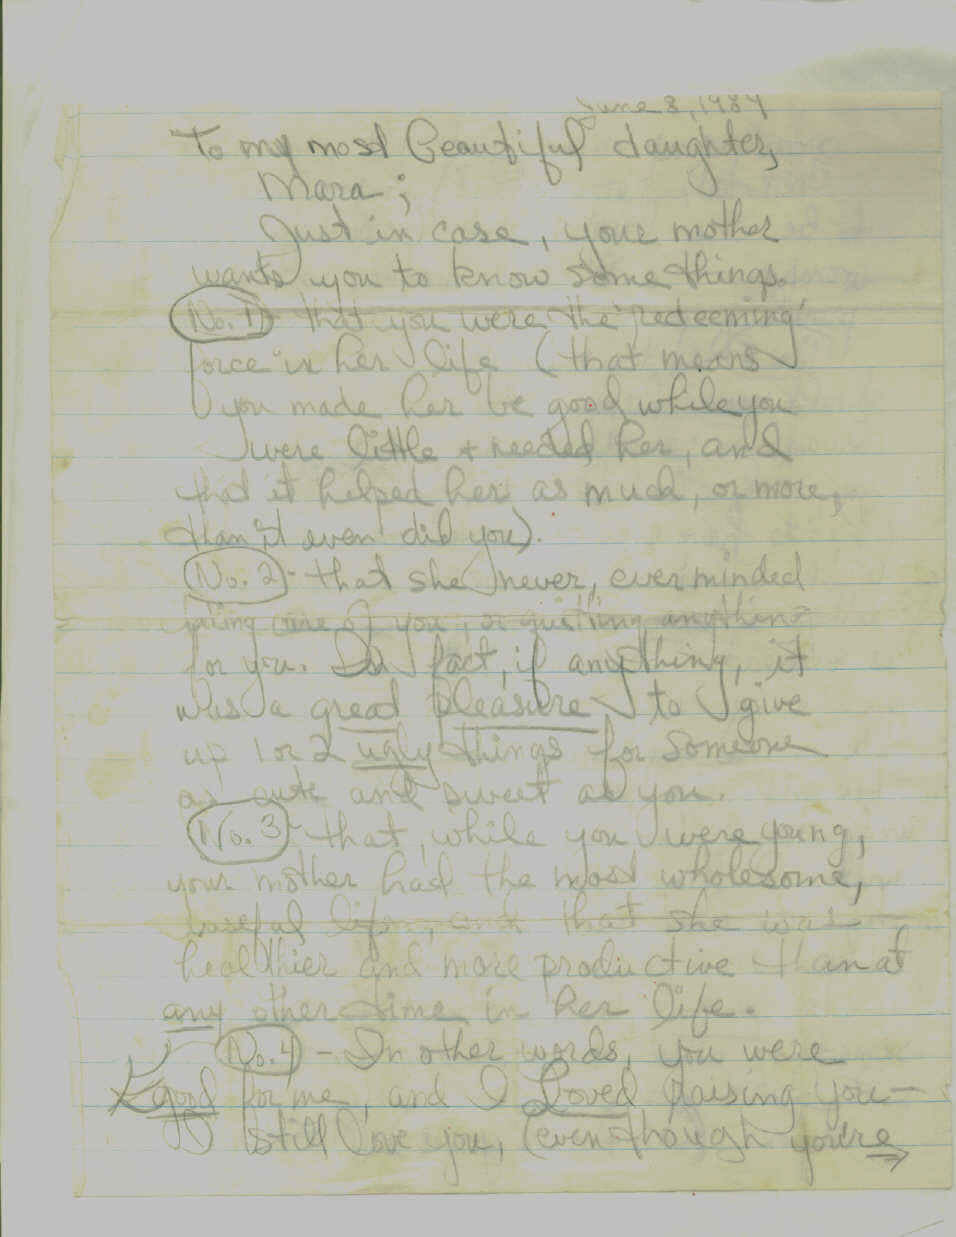 June 8, 1984
To my most beautiful daughter,
Mara;
Just in case, your mother
wants you to know some things.
No. 1) that you were the "redeeming
force" in her life (that means
you made her be good while you
were little + needed her, and
that it helped her as much, or more,
than it even did you).
No. 2) - that she never, ever minded
taking care of you, or quitting anything
for you. In fact, if anything, it
was a great pleasure to give
up 1 or 2 ugly things for someone
as cute and sweet as you.
No. 3 - that, while you were young,
your mother had the most wholesome,
useful life, and that she was
healthier and more productive than at
any other time in her life.
No. 4) - In other words, you were
good for me, and I Loved Raising you -
I still love you, (even though you're